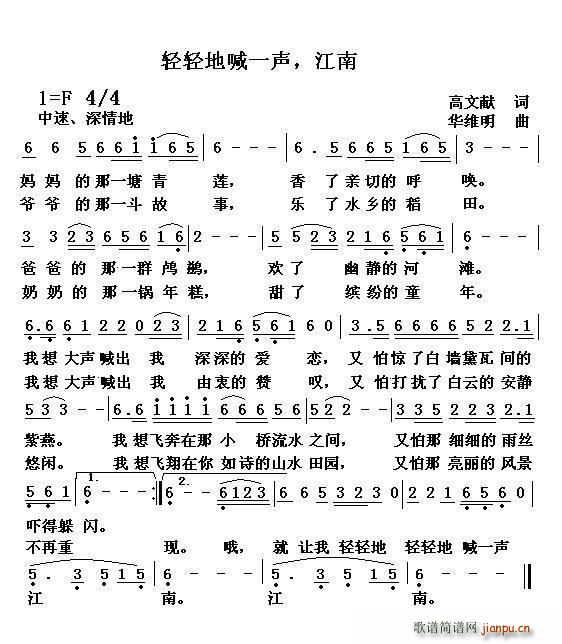 轻轻地喊一声，江南
1=F 4/4
中速、深情地
高文献 词
华维明 曲
6 6 5 6 6 i i 6 5 | 6 - - - | 6 . 5 6 6 5 1 6 6 5 | 3 - - - |
妈 妈 的 那一塘 青 莲， 香 了 亲切的 呼 唤。
爷 爷 的 那一斗 故 事， 乐 了 水乡的 稻 田。
3 3 2 3 6 5 6 1 6 | 2 - - - | 5 5 2 2 3 2 1 6 5 6 1 | 6 - - - |
爸 爸 的 那一群 鸬 鹚， 欢 了 幽静的 河 滩。
奶 奶 的 那一锅 年 糕， 甜 了 缤纷的 童 年。
6.6 6 1 2 2 0 2 3 | 2 1 6 5 6 1 6 0 | 3.5 6 6 6 6 6 5 2 2.1 |
我想大声喊出 我 深深的 爱 恋， 又 怕惊了白墙黛瓦间的
我想大声喊出 我 由衷的 赞 叹， 又 怕打扰了白云的安静
5 3 3 - - | 6.6 i i i i 6 6 6 5 6 | 5 2 2 - - | 3 3 5 2 2 3 2.1 |
紫燕。 我想飞奔在那 小 桥流水之间， 又怕那 细细的雨丝
悠闲。 我想飞翔在你 如诗的山水田园， 又怕那 亮丽的风景
1. 2.
5 6 1 6 - :| 6 - - 6 1 2 3 | 6 6 6 5 3 2 0 | 2 2 1 6 5 6 0 |
吓得躲 闪。
不再重 现。 哦， 就 让我 轻轻地 轻轻地 喊一声
5 . 3 5 1 5 | 6 - - - | 5 . 3 5 1 5 | 6 - - - ||
江 南。 江 南。
歌谱简谱网
jianpu.cn